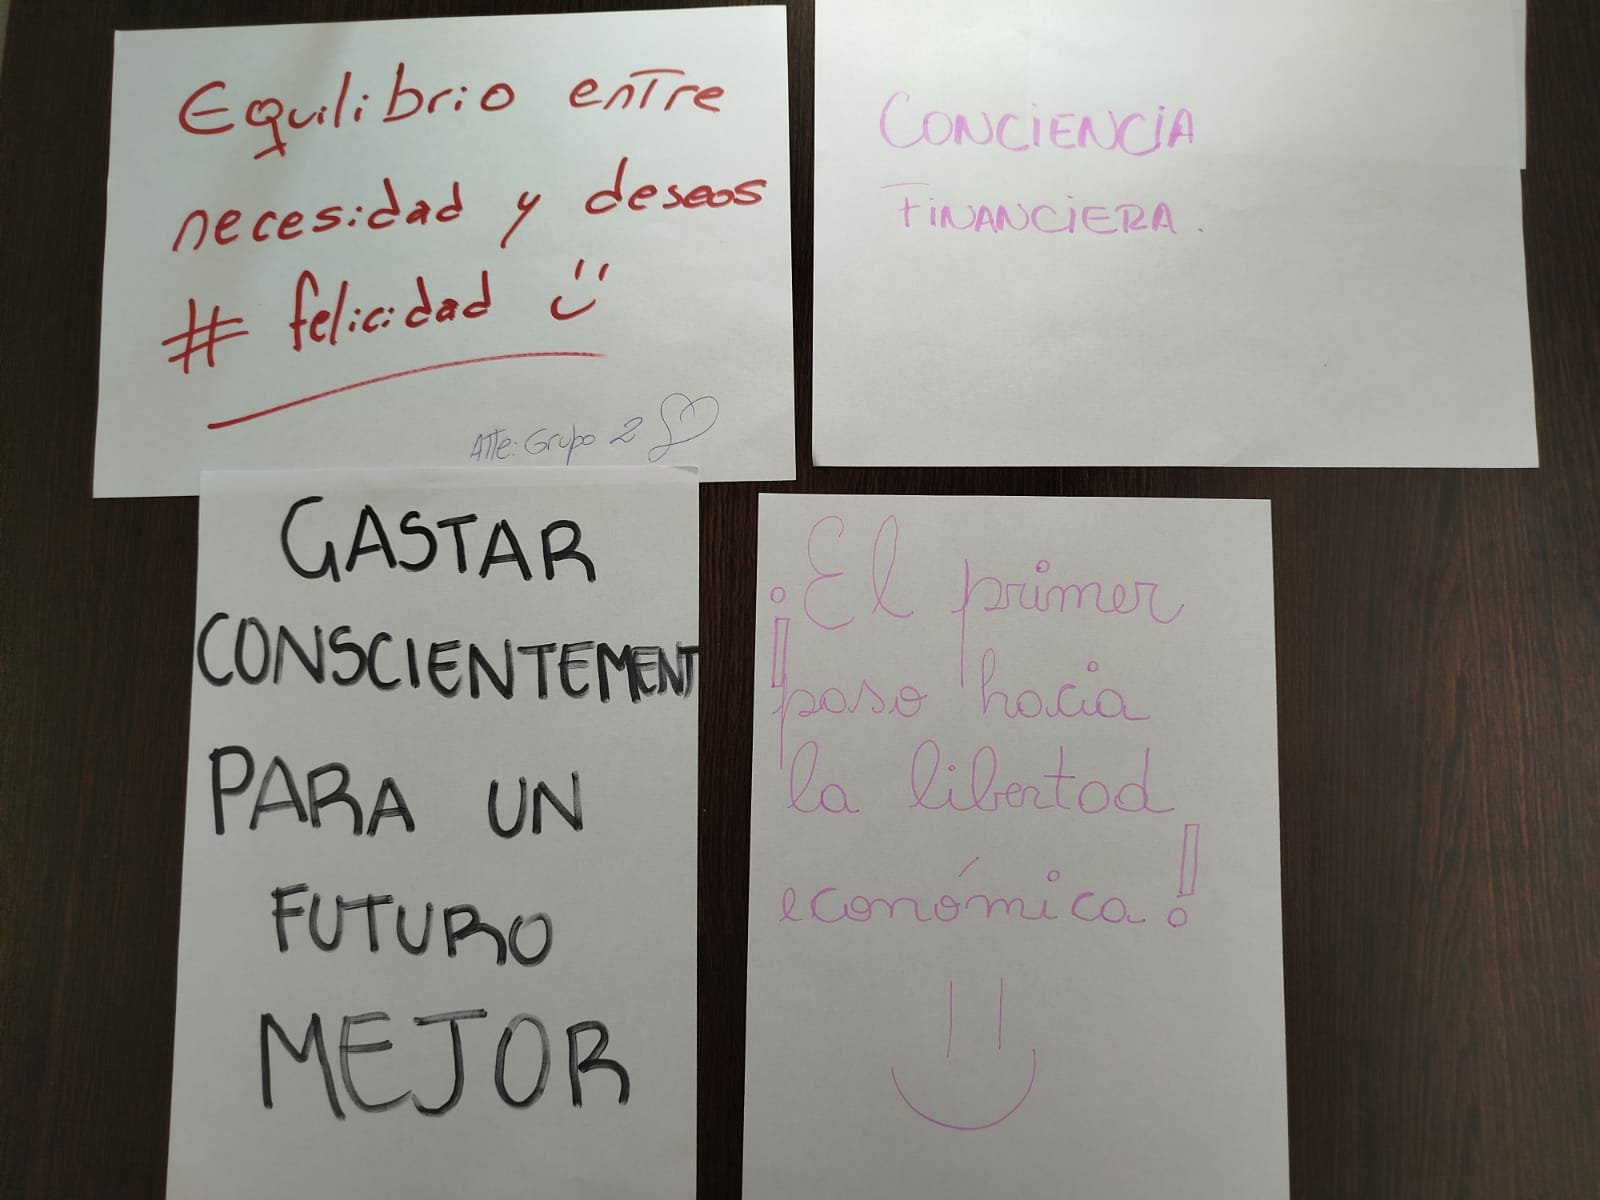 Equilibrio entre
necesidad y deseos
# felicidad
Atte: Grupo 2
CONCIENCIA
FINANCIERA.
GASTAR
CONSCIENTEMENT
PARA UN
FUTURO
MEJOR
¡El primer
paso hacia
la libertad
económica!